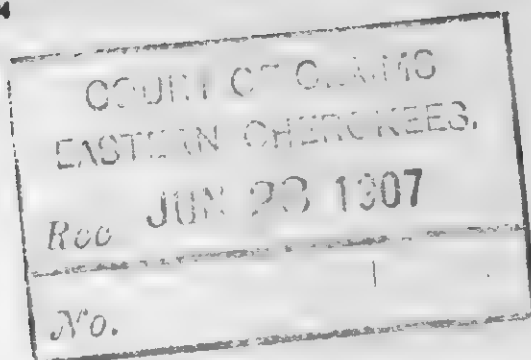 COURT OF CLAIMS
EASTERN CHEROKEES.
Rec JUN 1907
No.